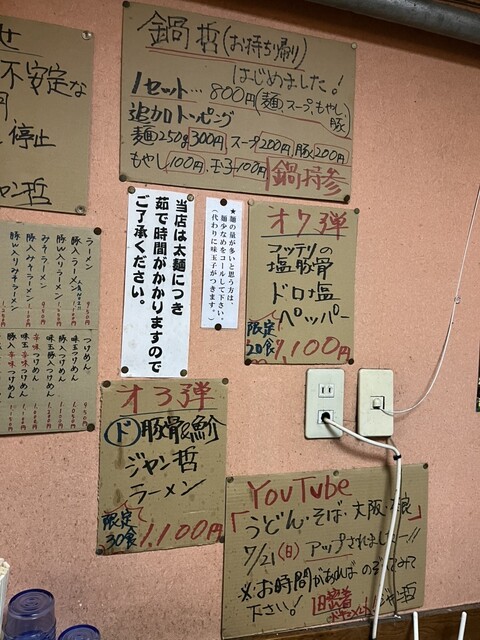 せ
不安定な
円
停止
ジャン哲
鍋哲(お持ち帰り)
はじめました!
1セット… 800円(麺、スープ、もやし、豚)
追加トッピング
麺250g 300円 スープ200円 豚200円
もやし100円、玉子100円 鍋持参
ラーメン
豚入りラーメン
豚W入りラーメン
みそラーメン
豚入りみそラーメン
豚W入りみそラーメン
つけめん
味玉つけめん
豚入りつけめん
味玉豚入りつけめん
辛味つけめん
味玉辛味つけめん
豚入り辛味つけめん
当店は太麺につき
茹で時間がかかりますので
ご了承ください。
★麺の量が多いと思う方は、
麺少なめをコールして下さい。
(代わりに味玉子がつきます。)
オ7弾
コッテリの
塩豚骨
ドロ塩
ペッパー
限定
20食
1,100円
オ3弾
ド豚骨&魚介
ジャン哲
ラーメン
限定
30食
1,100円
YouTube
「うどん・そば・大阪・奈良」
7/21(日) アップされました!!
※お時間があればのぞいてみて
下さい!
ジャン哲